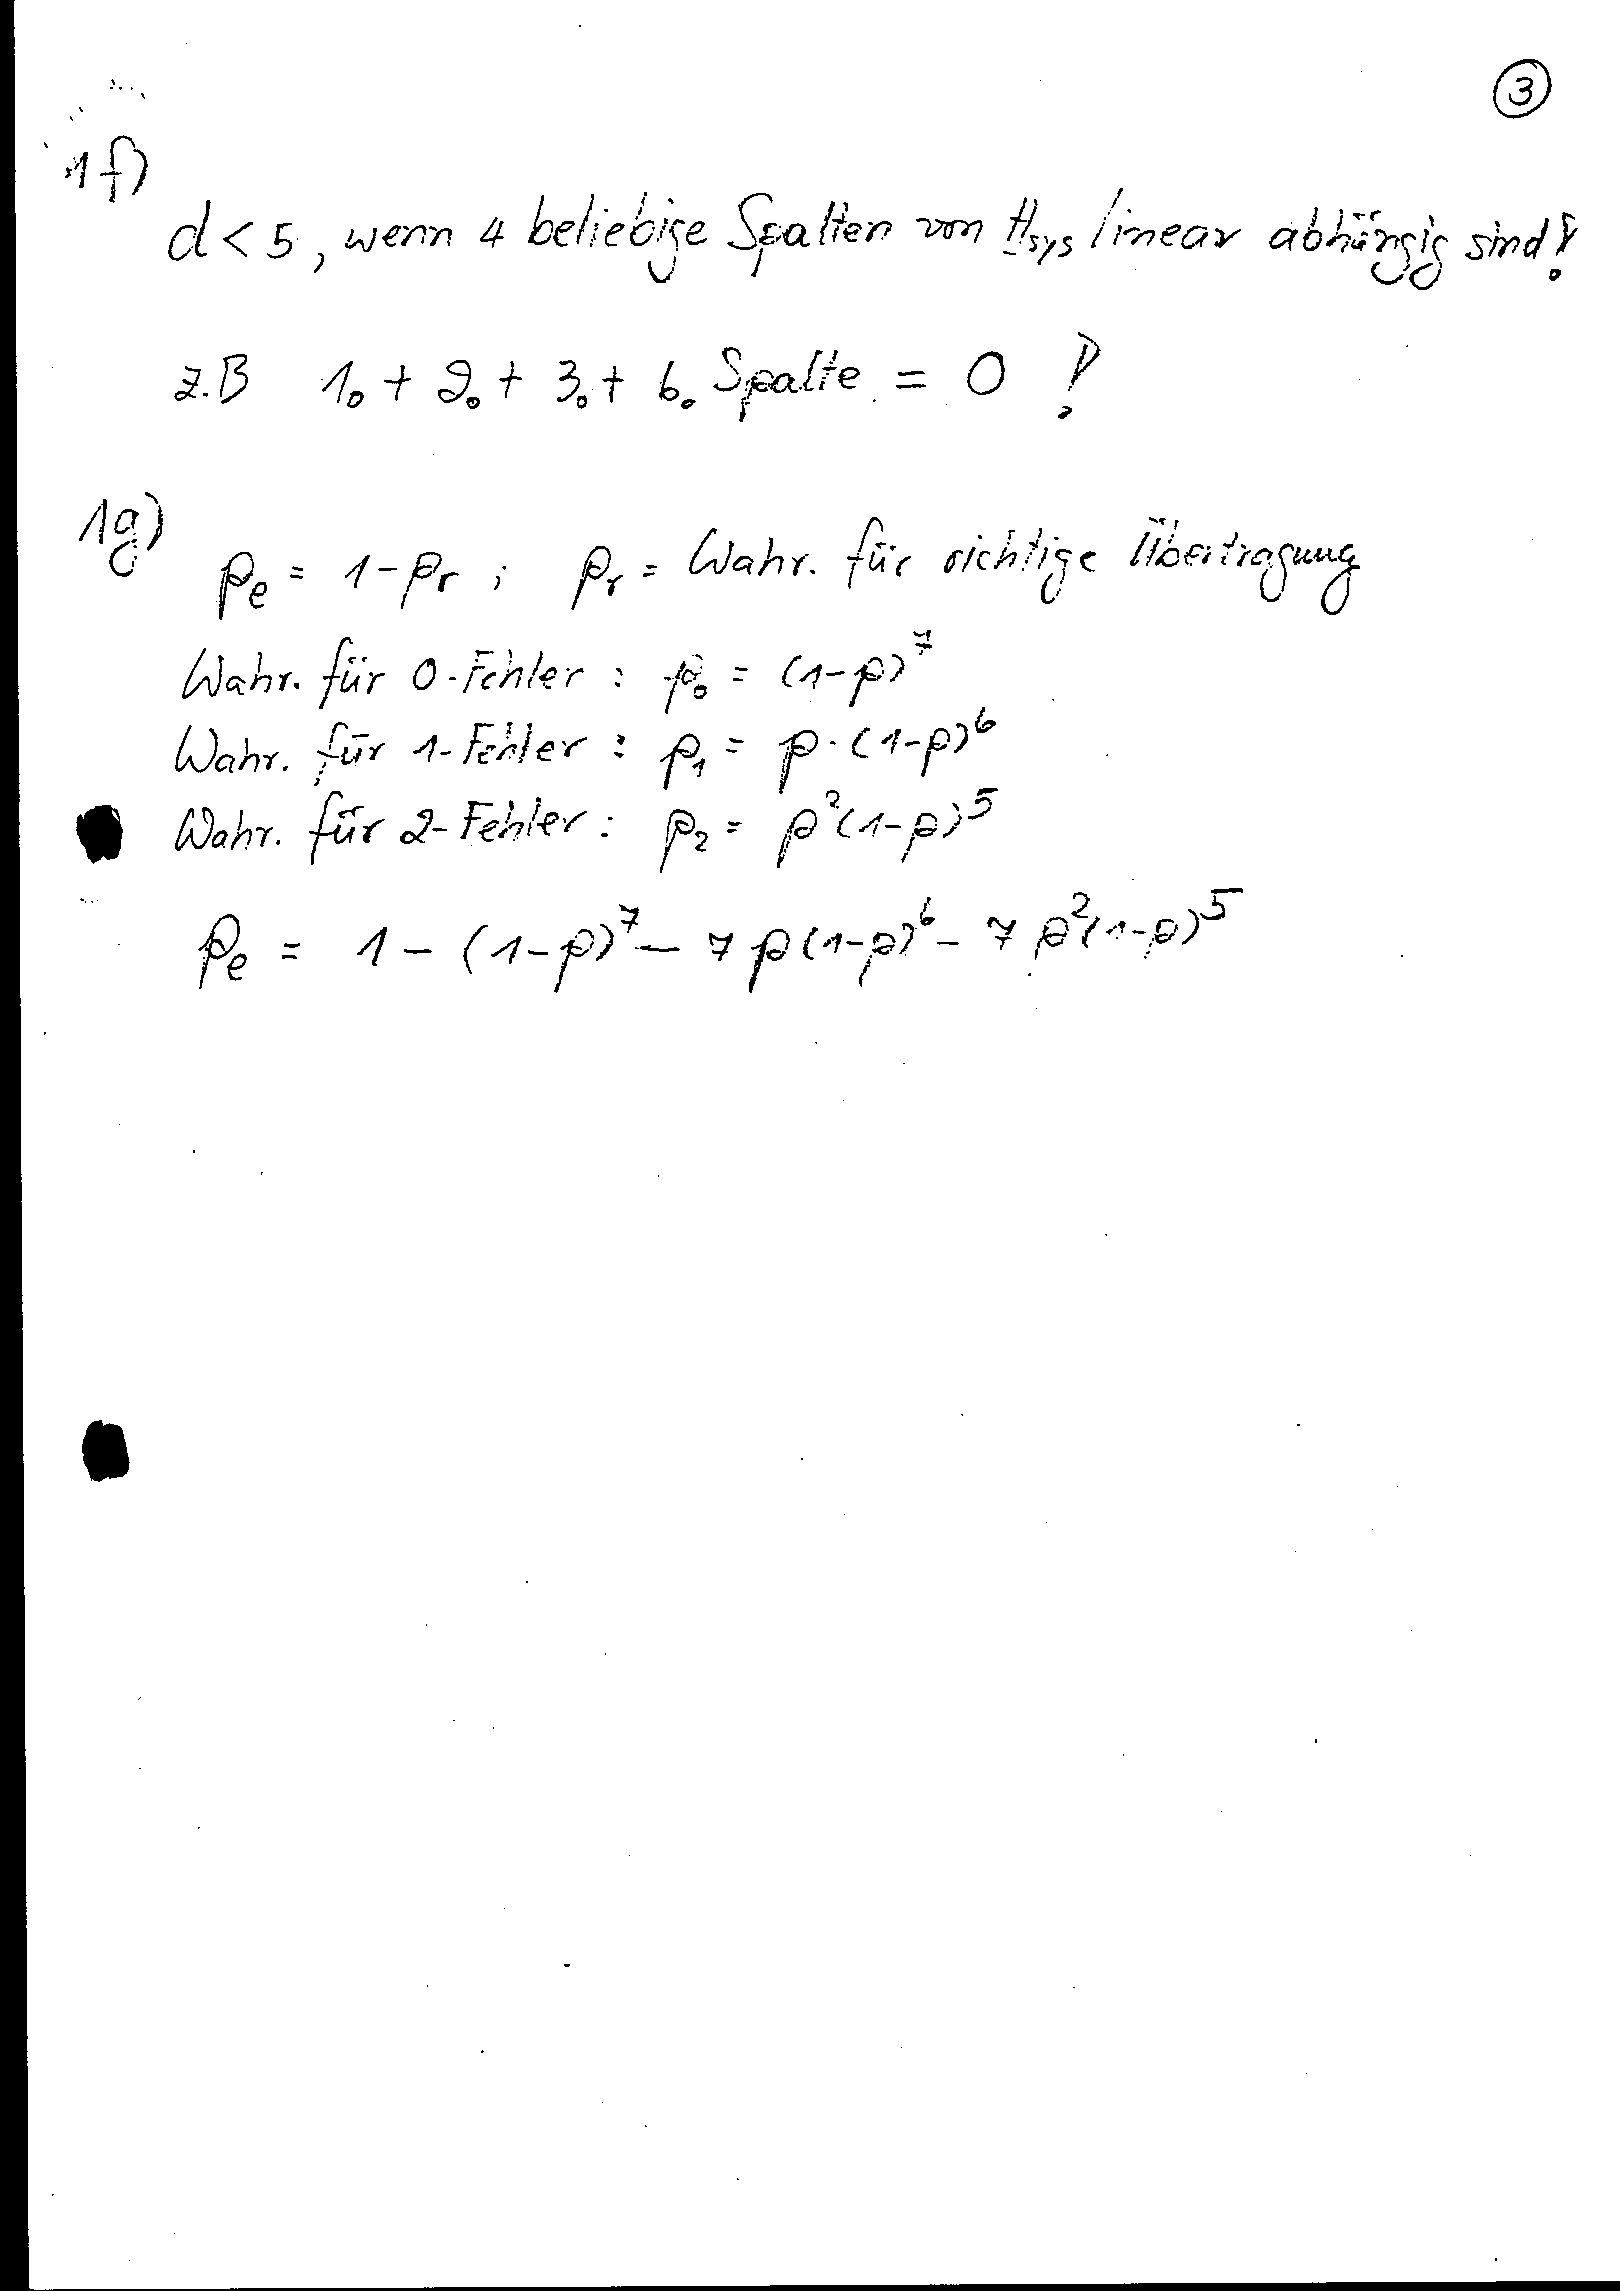 3
1f)
d < 5, wenn 4 beliebige Spalten von H_sys linear abhängig sind!
z.B 1. + 2. + 3. + 6. Spalte = 0 !
1g)
p_e = 1 - p_r ; p_r = Wahr. für richtige Übertragung
Wahr. für 0-Fehler : p_0 = (1-p)^7
Wahr. für 1-Fehler : p_1 = p · (1-p)^6
Wahr. für 2-Fehler : p_2 = p^2 (1-p)^5
p_e = 1 - (1-p)^7 - 7 p (1-p)^6 - 7 p^2 (1-p)^5